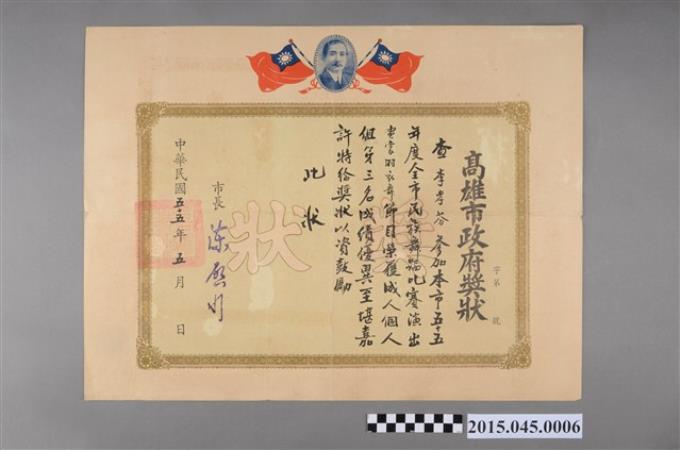 高雄市政府獎狀
字第 號
查李孝容參加本市五十五
年度全市民族舞蹈比賽演出
霓裳羽衣舞節目榮獲成人個人
組第三名成績優異至堪嘉
許特給獎狀以資鼓勵
此狀
市長 陳啟川
中華民國五十五年五月 日
獎狀
2015.045.0006